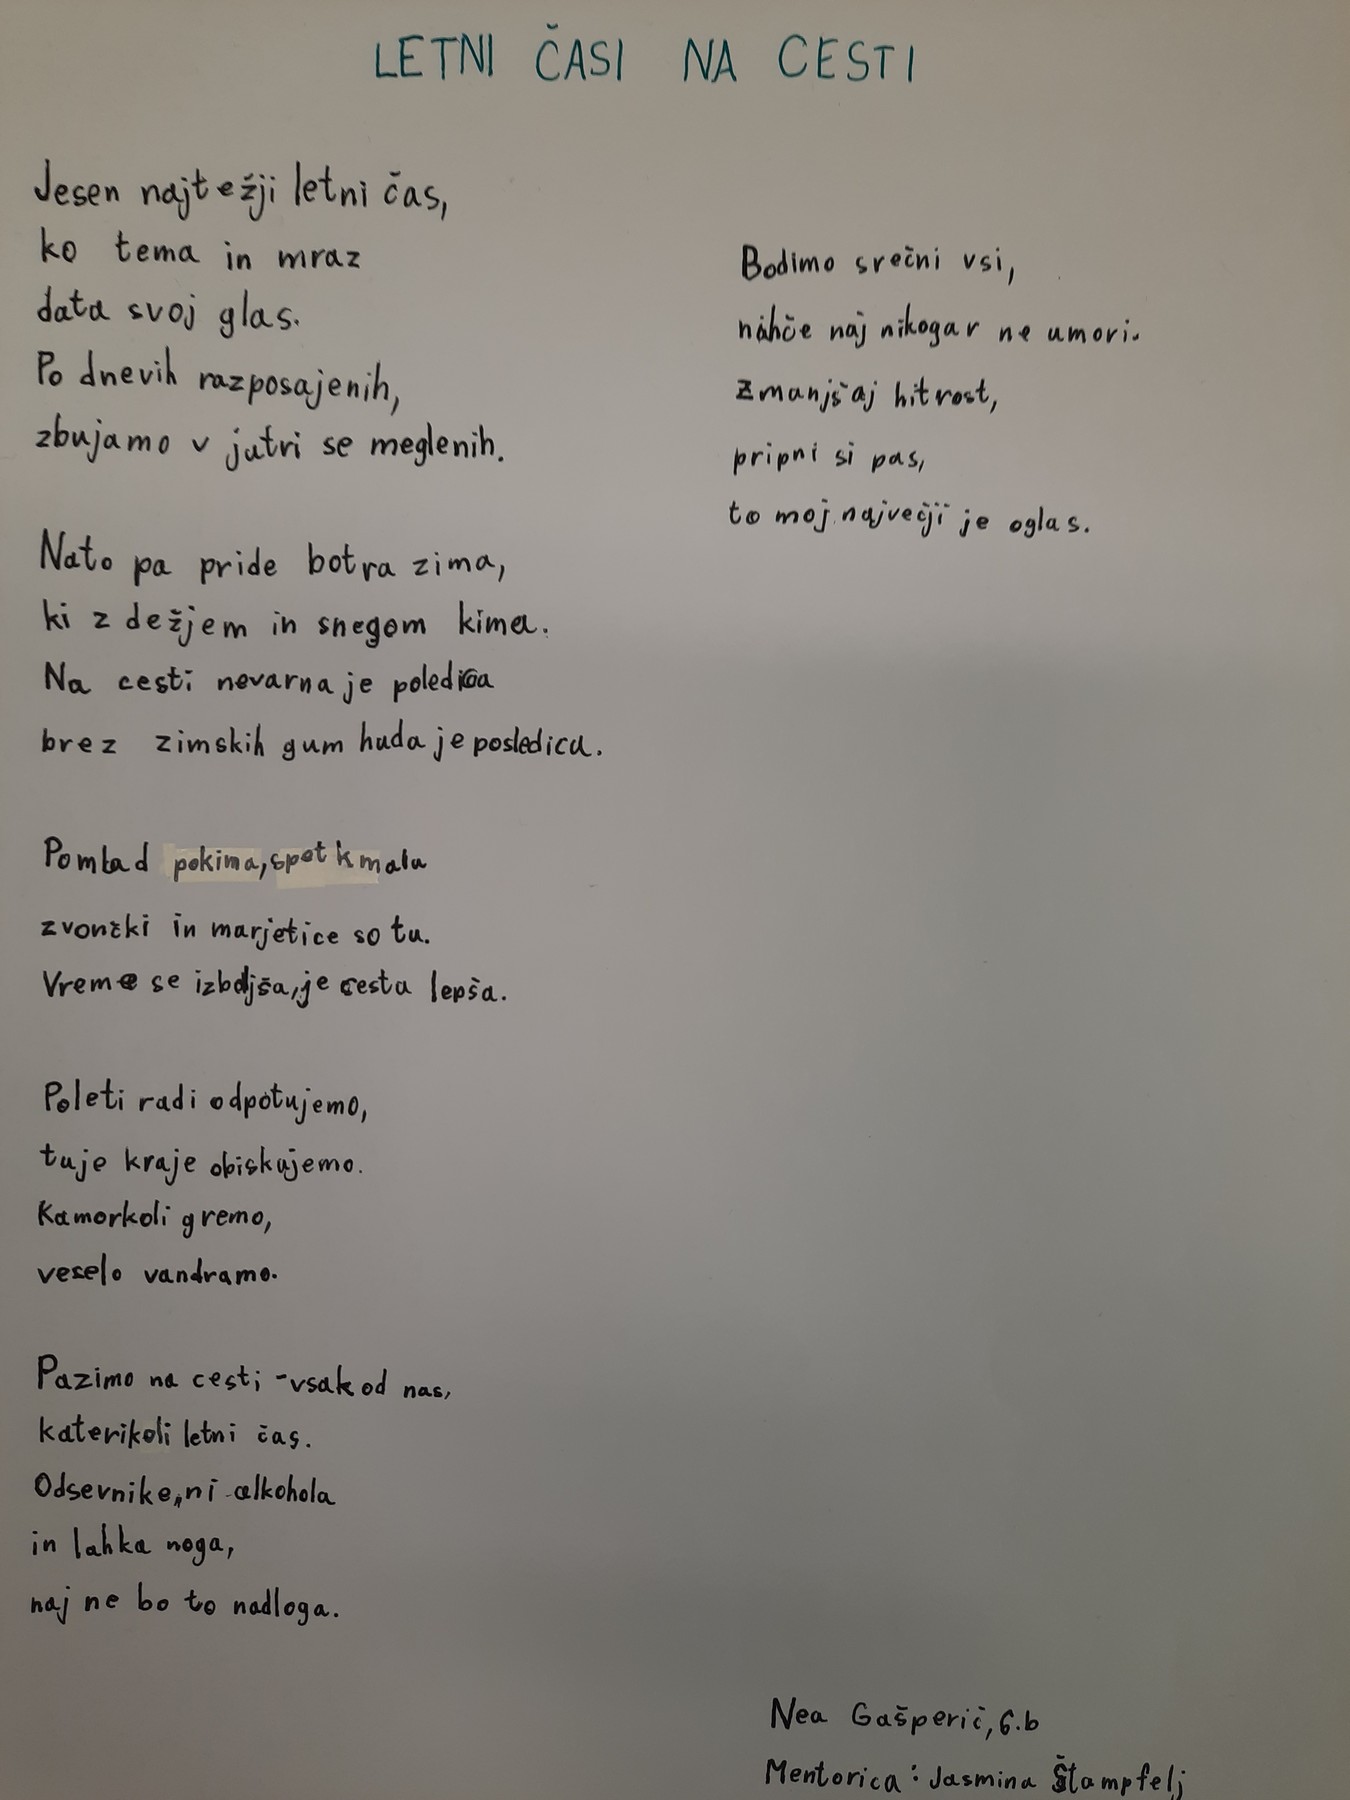 LETNI ČASI NA CESTI
Jesen najtežji letni čas,
ko tema in mraz
data svoj glas.
Po dnevih razposajenih,
zbujamo v jutri se meglenih.
Nato pa pride botra zima,
ki z dežjem in snegom kima.
Na cesti nevarna je poledica
brez zimskih gum huda je posledica.
Pomlad pokima, spet k malu
zvončki in marjetice so tu.
Vreme se izboljša, je cesta lepša.
Poleti radi odpotujemo,
tuje kraje obiskujemo.
Kamorkoli gremo,
veselo vandramo.
Pazimo na cesti - vsak od nas,
katerikoli letni čas.
Odsevnike, ni alkohola
in lahka noga,
naj ne bo to nadloga.
Bodimo srečni vsi,
nihče naj nikogar ne umori.
Zmanjšaj hitrost,
pripni si pas,
to moj največji je oglas.
Nea Gašperič, 6.b
Mentorica: Jasmina Štampfelj